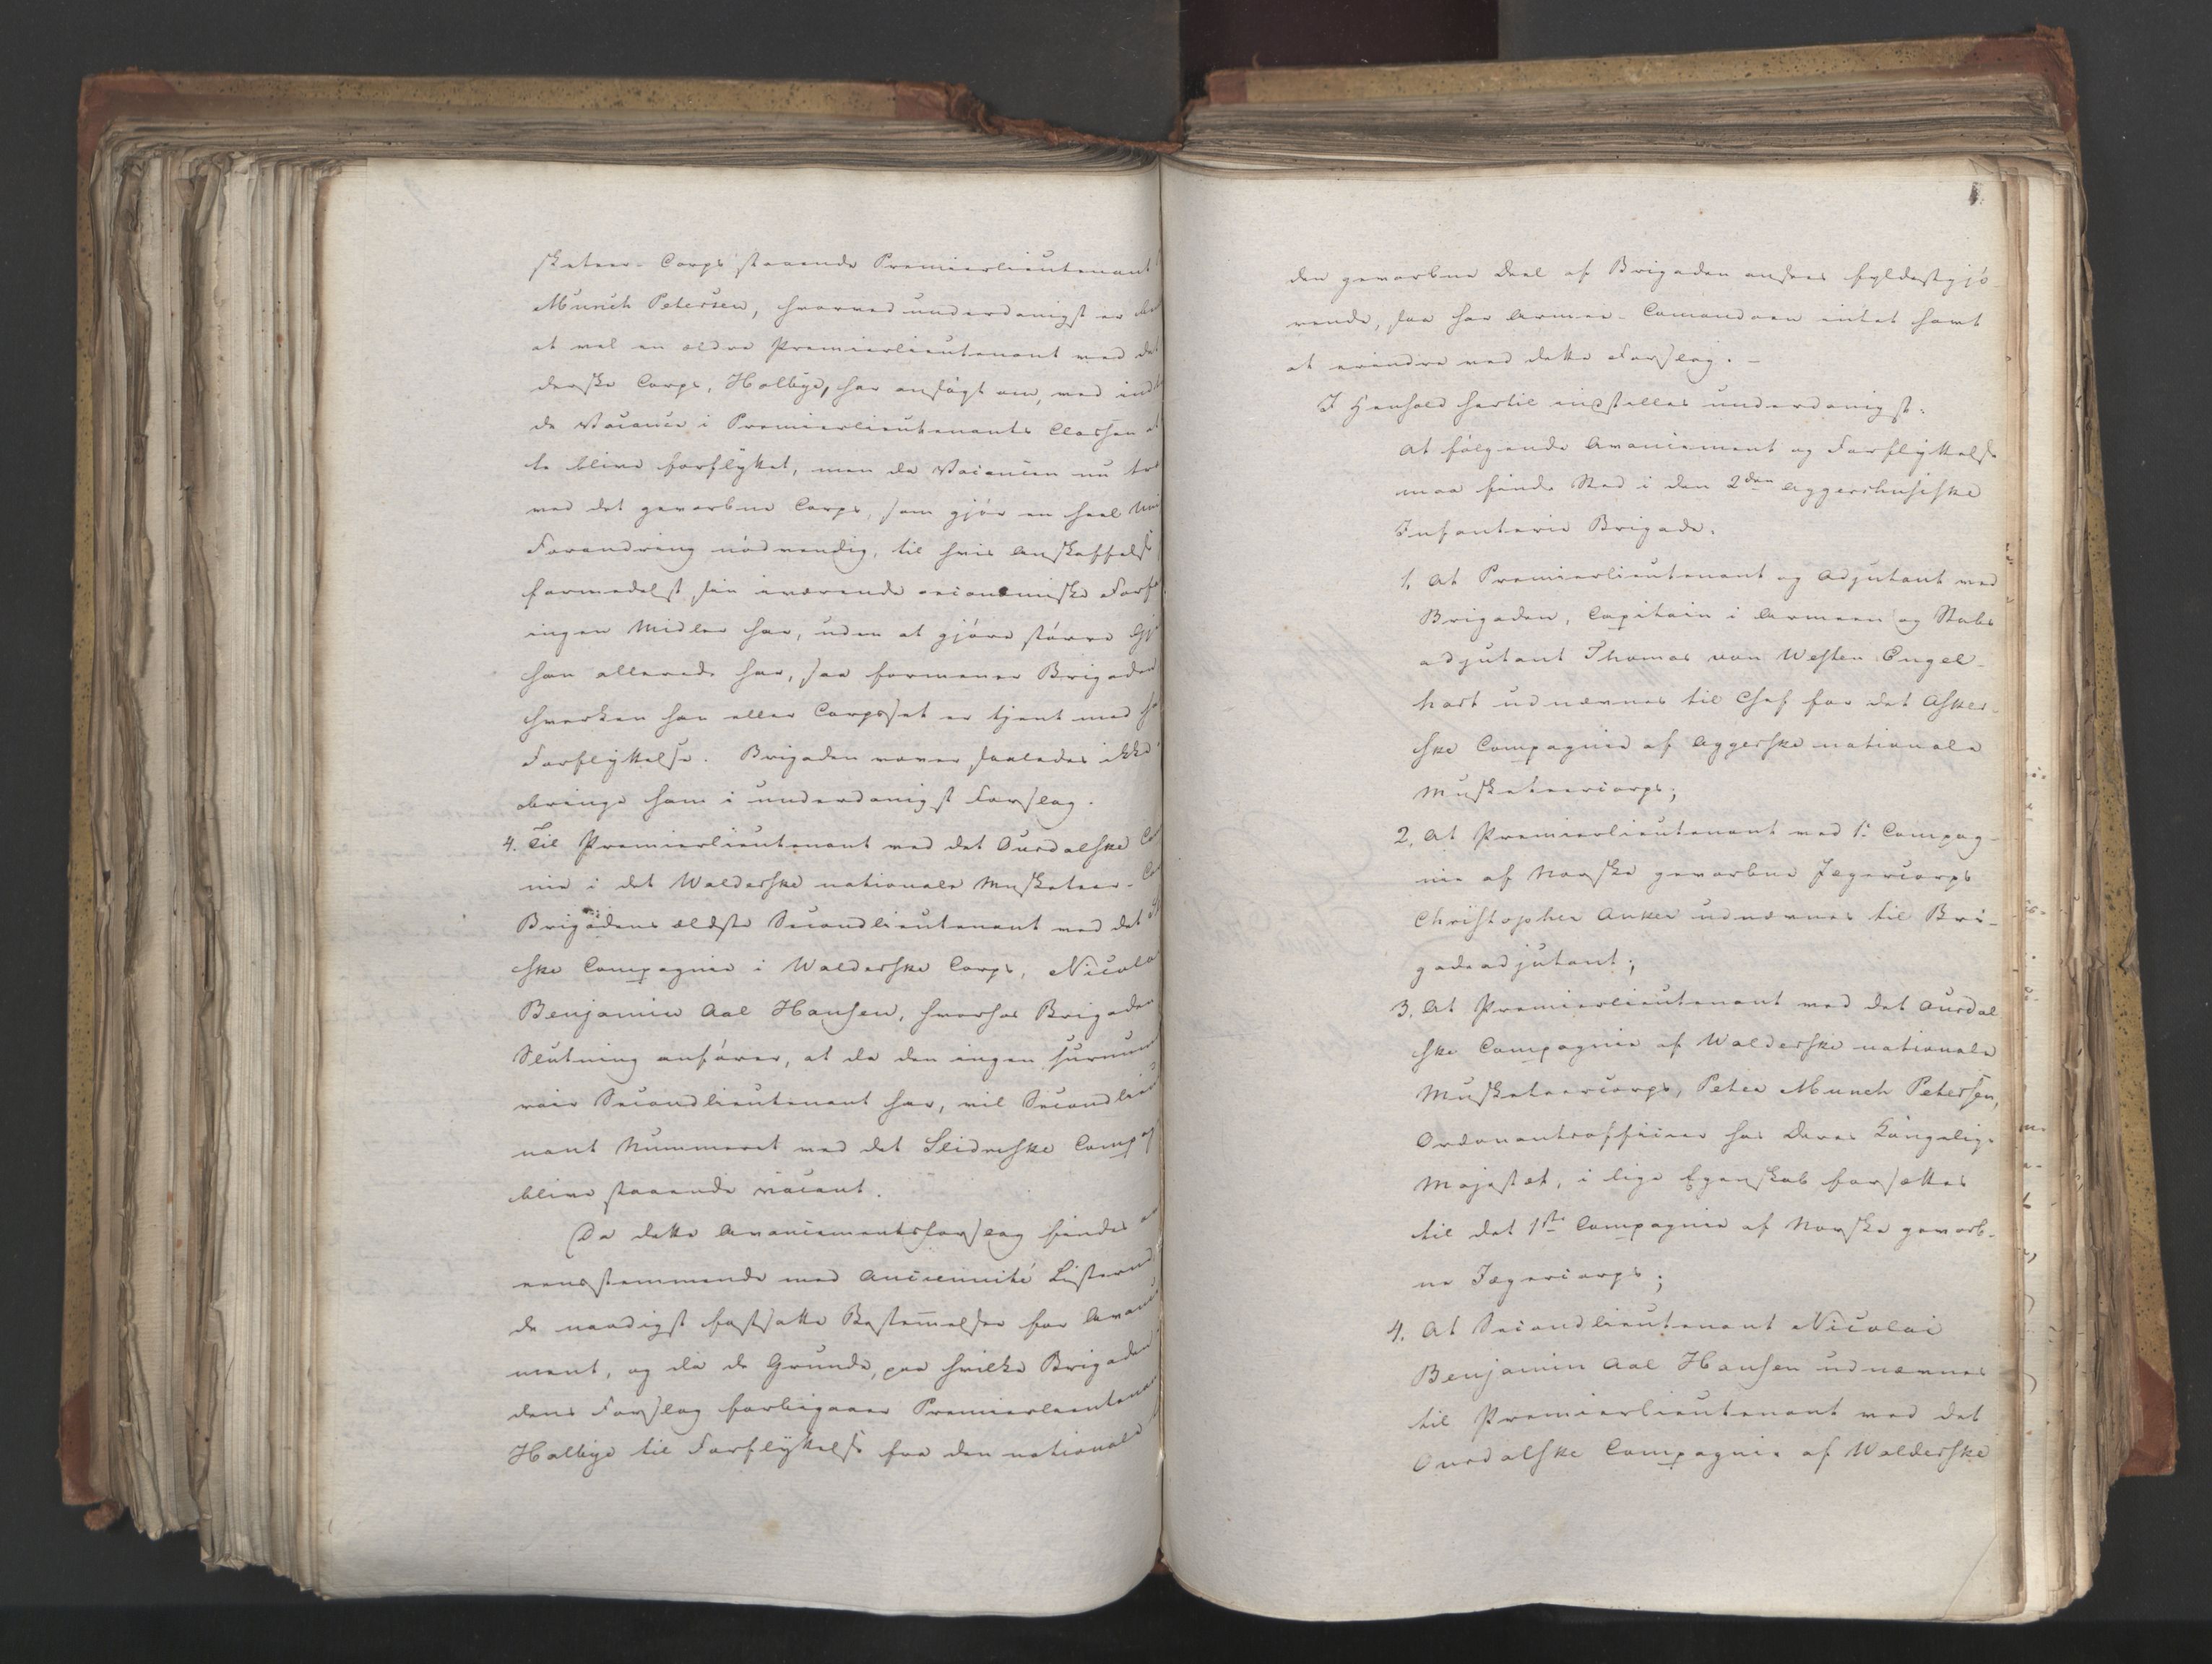 sketeer-Corps staaende Premierlieutenant
Munch Petersen, hvorved underdanigst er
at vel en ældre Premierlieutenant ved det
derske Corps, Holbye, har ansøgt om, ved
de Vacance i Premierlieutenants Classen at
te blive forflyttet, men da Vacancen nu
ved det gevorbne Corps, som gjør en heel
Forandring nødvendig, til hvis Anskaffelse
formedelst sin nærende oeconomiske
ingen Midler har, uden at gjøre større
han allerede har, saa formener Brigaden
hverken han eller Corpset er tjent med
Forflyttelse. Brigaden vover saaledes ikke
bringe ham i underdanigst Forslag.
4. Til Premierlieutenant ved det Ourdalske
nie i det Walderske nationale Musketeer-
Brigadens ældste Secondlieutenant ved det
ske Compagnie i Walderske Corps, Nicola
Benjamin Aal Hansen, hvorhos Brigaden
Slutning anfører, at da den ingen surnume
rair Secondlieutenant har, vil Secondlieu
nant Nummeret ved det Slidreske Compag
blive staaende vacant.
Da dette Avancementsforslag findes
eensstemmende med Anciennité Listerne
de naadigst fastsatte Bestemelser for Avance
ment, og da de Grunde, paa hvilke Brigaden
dens Forslag forbigaaer Premierlieutenant
Holbye til Forflyttelse fra den nationale
den gevorbne Deel af Brigaden ansees fyldestgjø
rende, saa har Armee-Comandoen intet havt
at erindre ved dette Forslag. –
I Henhold hertil indstilles underdanigst:
At følgende Avancement og Forflyttelse
maa finde Sted i den 2den Aggershusiske
Infanterie Brigade.
1. At Premierlieutenant og Adjutant ved
Brigaden, Capitain i Armeen og Stabs
adjutant Thomas von Westen Engel-
hart udnævnes til Chef for det Asker-
ske Compagnie af Aggerske nationale
Musketeercorps;
2. At Premierlieutenant ved 1ste Compag-
nie af Norske gevorbne Jægercorps
Christopher Anker udnævnes til Bri-
gadeadjutant;
3. At Premierlieutenant ved det Ourdal
ske Compagnie af Walderske nationale
Musketeercorps, Peter Munch Petersen,
Ordonantsofficier hos Deres Kongelige
Majestæt, i lige Egenskab forsættes
til det 1ste Compagnie af Norske gevorb-
ne Jægercorps;
4. At Secondlieutenant Nicolai
Benjamin Aal Hansen udnævnes
til Premierlieutenant ved det
Ourdalske Compagnie af Walderske